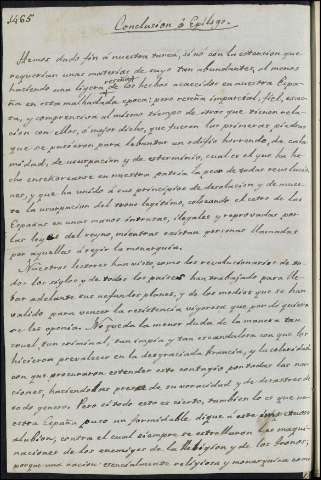 1465
Conclusion ó Epílogo.
Hemos dado fin á nuestra tarea, sinó con la estencion que
requerian unas materias de suyo tan abundantes, al menos
haciendo una ligera reseña de los hechos acaecidos en nuestra Espa-
ña en esta malhadada epoca; pero reseña imparcial, fiel, esac-
ta, y comprensiva al mismo tiempo de otros que tienen rela-
cion con ellos, ó mejor dicho, que fueron las primeras piedras
que se pusieron para lebantar un edificio horrendo, de cala-
midad, de usurpacion y de esterminio, cual es el que ha he-
cho enseñorearse en nuestra patria la peor de todas revolucio-
nes, y que ha unido á sus principios de desolacion y de muer-
te la usurpacion del trono legitimo, colocando el cetro de las
Españas en unas manos intrusas, ilegales y reprovadas por
las leyes del reyno, mientras existan personas llamadas
por aquellas á regir la monarquia.
Nuestros lectores han visto como los revolucionarios de to-
dos los siglos y de todos los paises han trabajado para lle-
bar adelante sus nefandos planes, y de los medios que se han
valido para vencer la resistencia vigorosa que por dó quiera
se les oponia. No queda la menor duda de la manera tan
cruel, tan criminal, tan impia y tan escandalosa con que los
hicieron prevalecer en la desgraciada Francia, y la celeridad
con que procuraron estender este contagio por todas las na-
ciones, haciendolas presa de su voracidad y de desastres de
todo genero. Pero si todo esto es cierto, tambien lo es que nu-
estra España puso un formidable dique á este
alubion, contra el cual siempre se estrellaron las maqui-
naciones de los enemigos de la Religion y de los tronos,
porque una nacion esencialmente religiosa y monarquica como